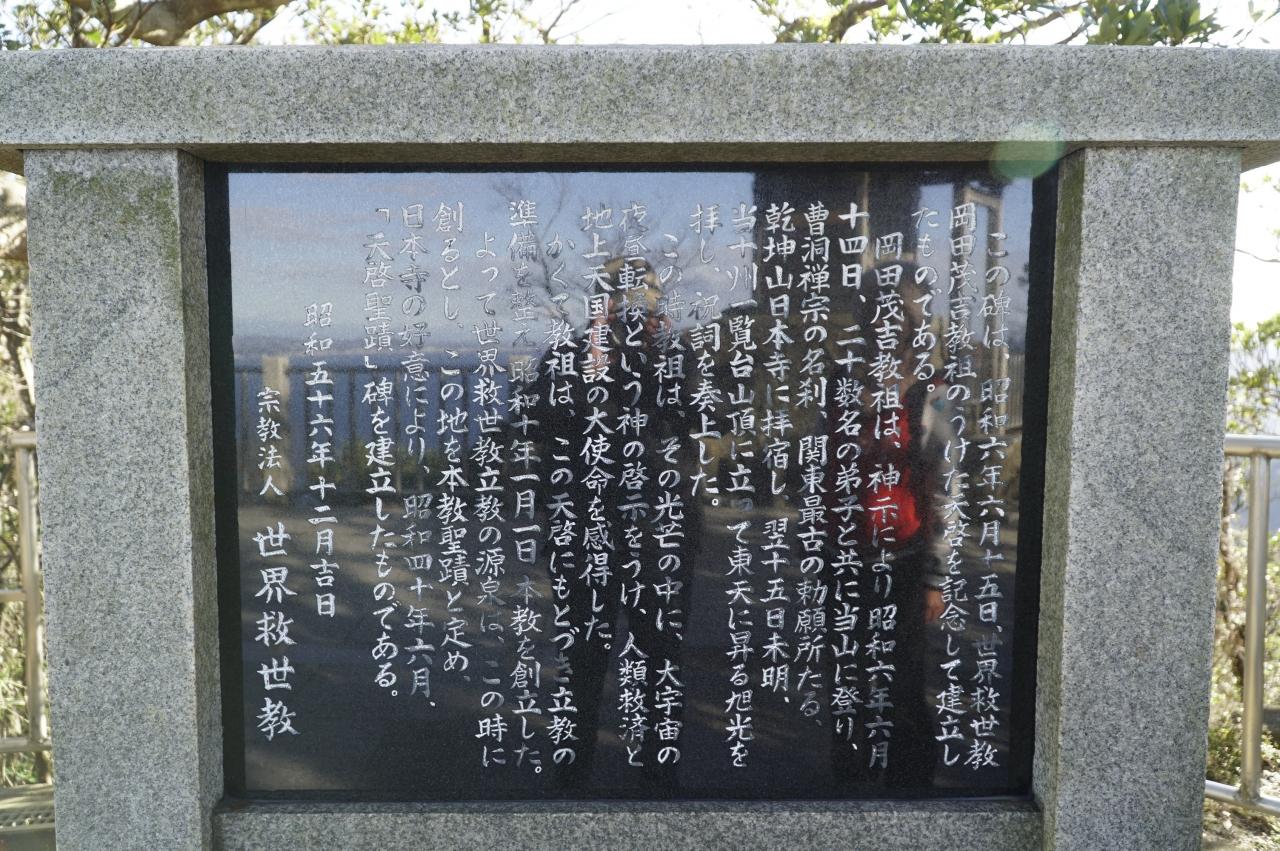 この碑は、昭和六年六月十五日、世界救世教
岡田茂吉教祖のうけた天啓を記念して建立し
たものである。
岡田茂吉教祖は、神示により昭和六年六月
十四日、二十数名の弟子と共に当山に登り、
曹洞禅宗の名刹、関東最古の勅願所たる、
乾坤山日本寺に拝宿し、翌十五日未明、
当十州一覧台山頂に立って東天に昇る旭光を
拝し、祝詞を奏上した。
この時教祖は、その光芒の中に、大宇宙の
夜昼転換という神の啓示をうけ、人類救済と
地上天国建設の大使命を感得した。
かくて教祖は、この天啓にもとづき立教の
準備を整え昭和十年一月一日本教を創立した。
よって世界救世教立教の源泉は、この時に
創るとし、この地を本教聖蹟と定め、
日本寺の好意により、昭和四十年六月、
「天啓聖蹟」碑を建立したものである。
昭和五十六年十二月吉日
宗教法人 世界救世教